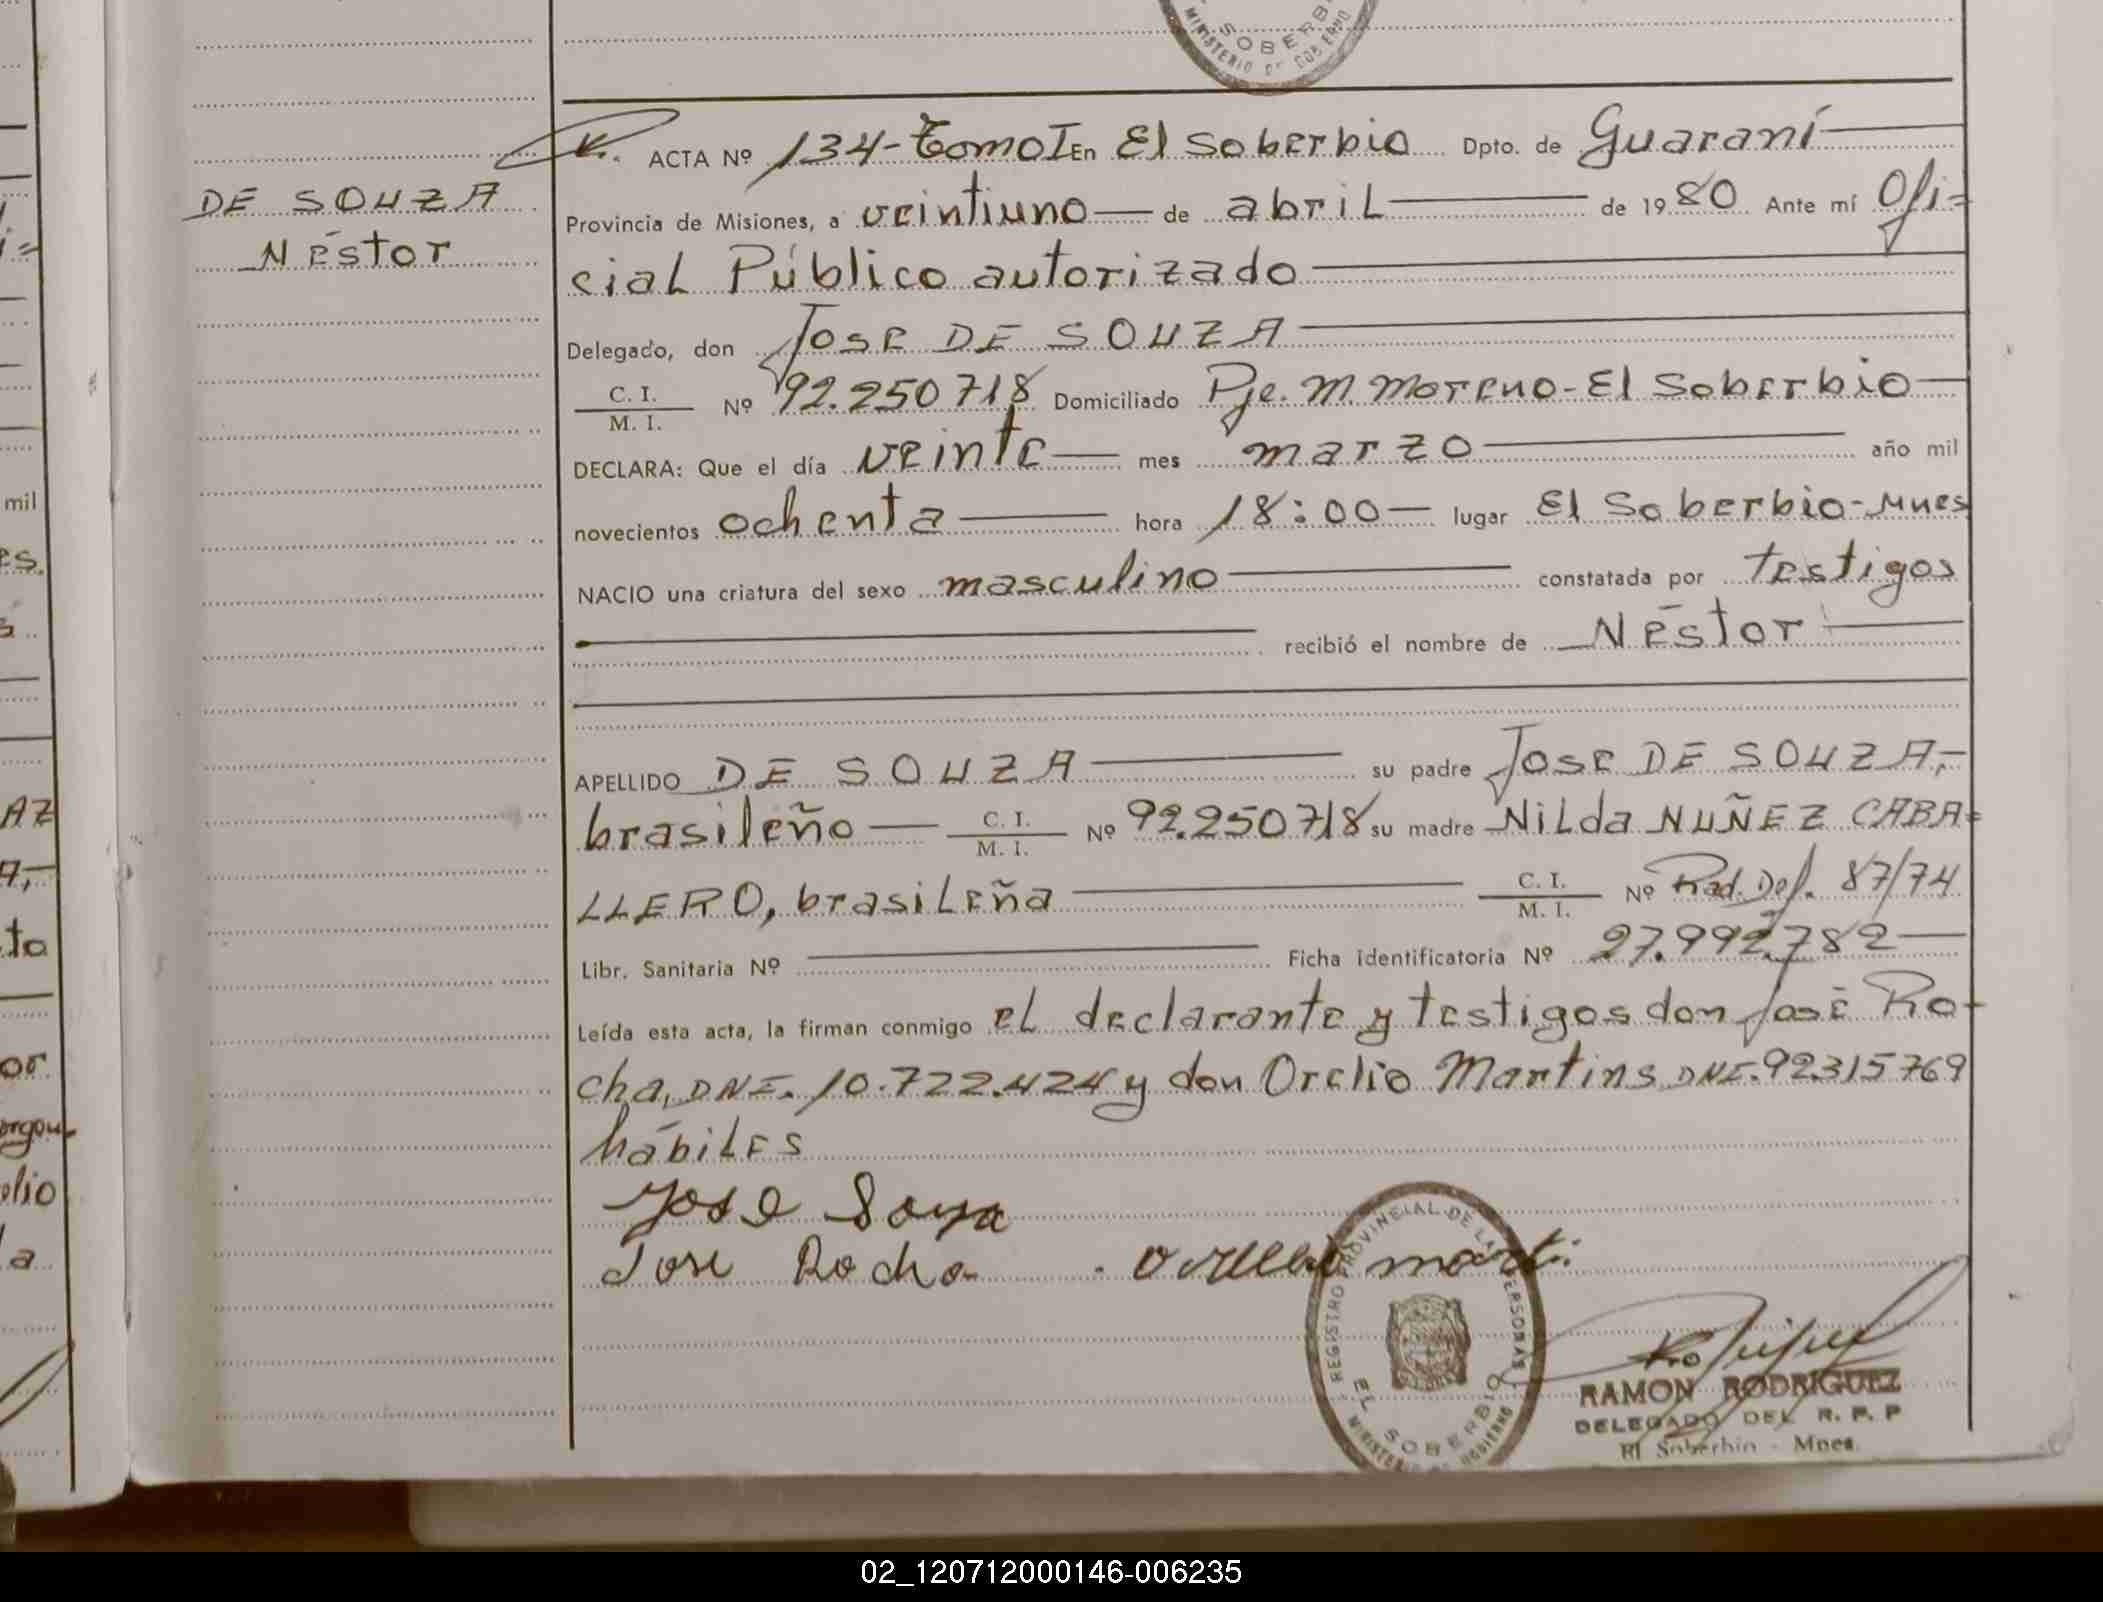 SOBERB
MINISTERIO DE GOBIERNO
ACTA Nº 134-Tomo I En El Soberbio Dpto. de Guaraní
DE SOUZA
Néstor
Provincia de Misiones, a veintiuno de abril de 1980 Ante mí Ofi=
cial Público autorizado
Delegado, don José DE SOUZA
C. I.
M. I. Nº 92.250718 Domiciliado Pje. M. Moreno-El Soberbio
DECLARA: Que el día veinte mes marzo año mil
novecientos ochenta hora 18:00 lugar El Soberbio-Mnes
NACIO una criatura del sexo masculino constatada por testigos
recibió el nombre de Néstor
APELLIDO DE SOUZA su padre José DE SOUZA,-
brasileño C. I.
M. I. Nº 92.250718 su madre Nilda NUÑEZ CABA=
LLERO, brasileña C. I.
M. I. Nº Rad. Def. 87/74
Libr. Sanitaria Nº Ficha Identificatoria Nº 27.992.782
Leída esta acta, la firman conmigo el declarante y testigos don José Ro-
cha, DNE. 10.722.424 y don Orelio Martins DNE. 92315769
hábiles
José Souza
Jose Rocha
REGISTRO PROVINCIAL DE LAS PERSONAS
EL SOBERBIO
MINISTERIO DE GOBIERNO
RAMON RODRIGUEZ
DELEGADO DEL R. P. P
El Soberbio - Mnes.
mil
es.
AZ
ta
or
elio
a
02_120712000146-006235